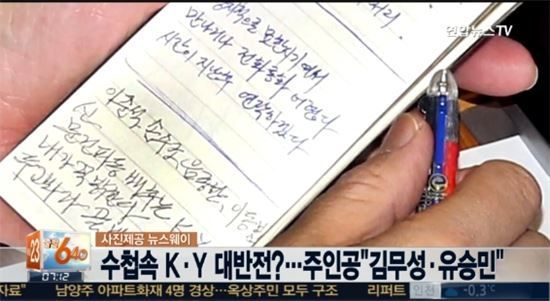 연합뉴스TV
만나거나 전화통화 어렵다
시간이 지난 후 연락하겠다
이준석, 손수조, 음종환, 이동빈
신
문건파동 배후는
내가 꼭 밝힌다
두고봐라 곧
사진제공 뉴스웨이
23 640
07:12
수첩속 K·Y 대반전?…주인공"김무성·유승민"
자료" 남양주 아파트화재 4명 경상…옥상주민 모두 구조 리퍼트 인천 -0.3℃